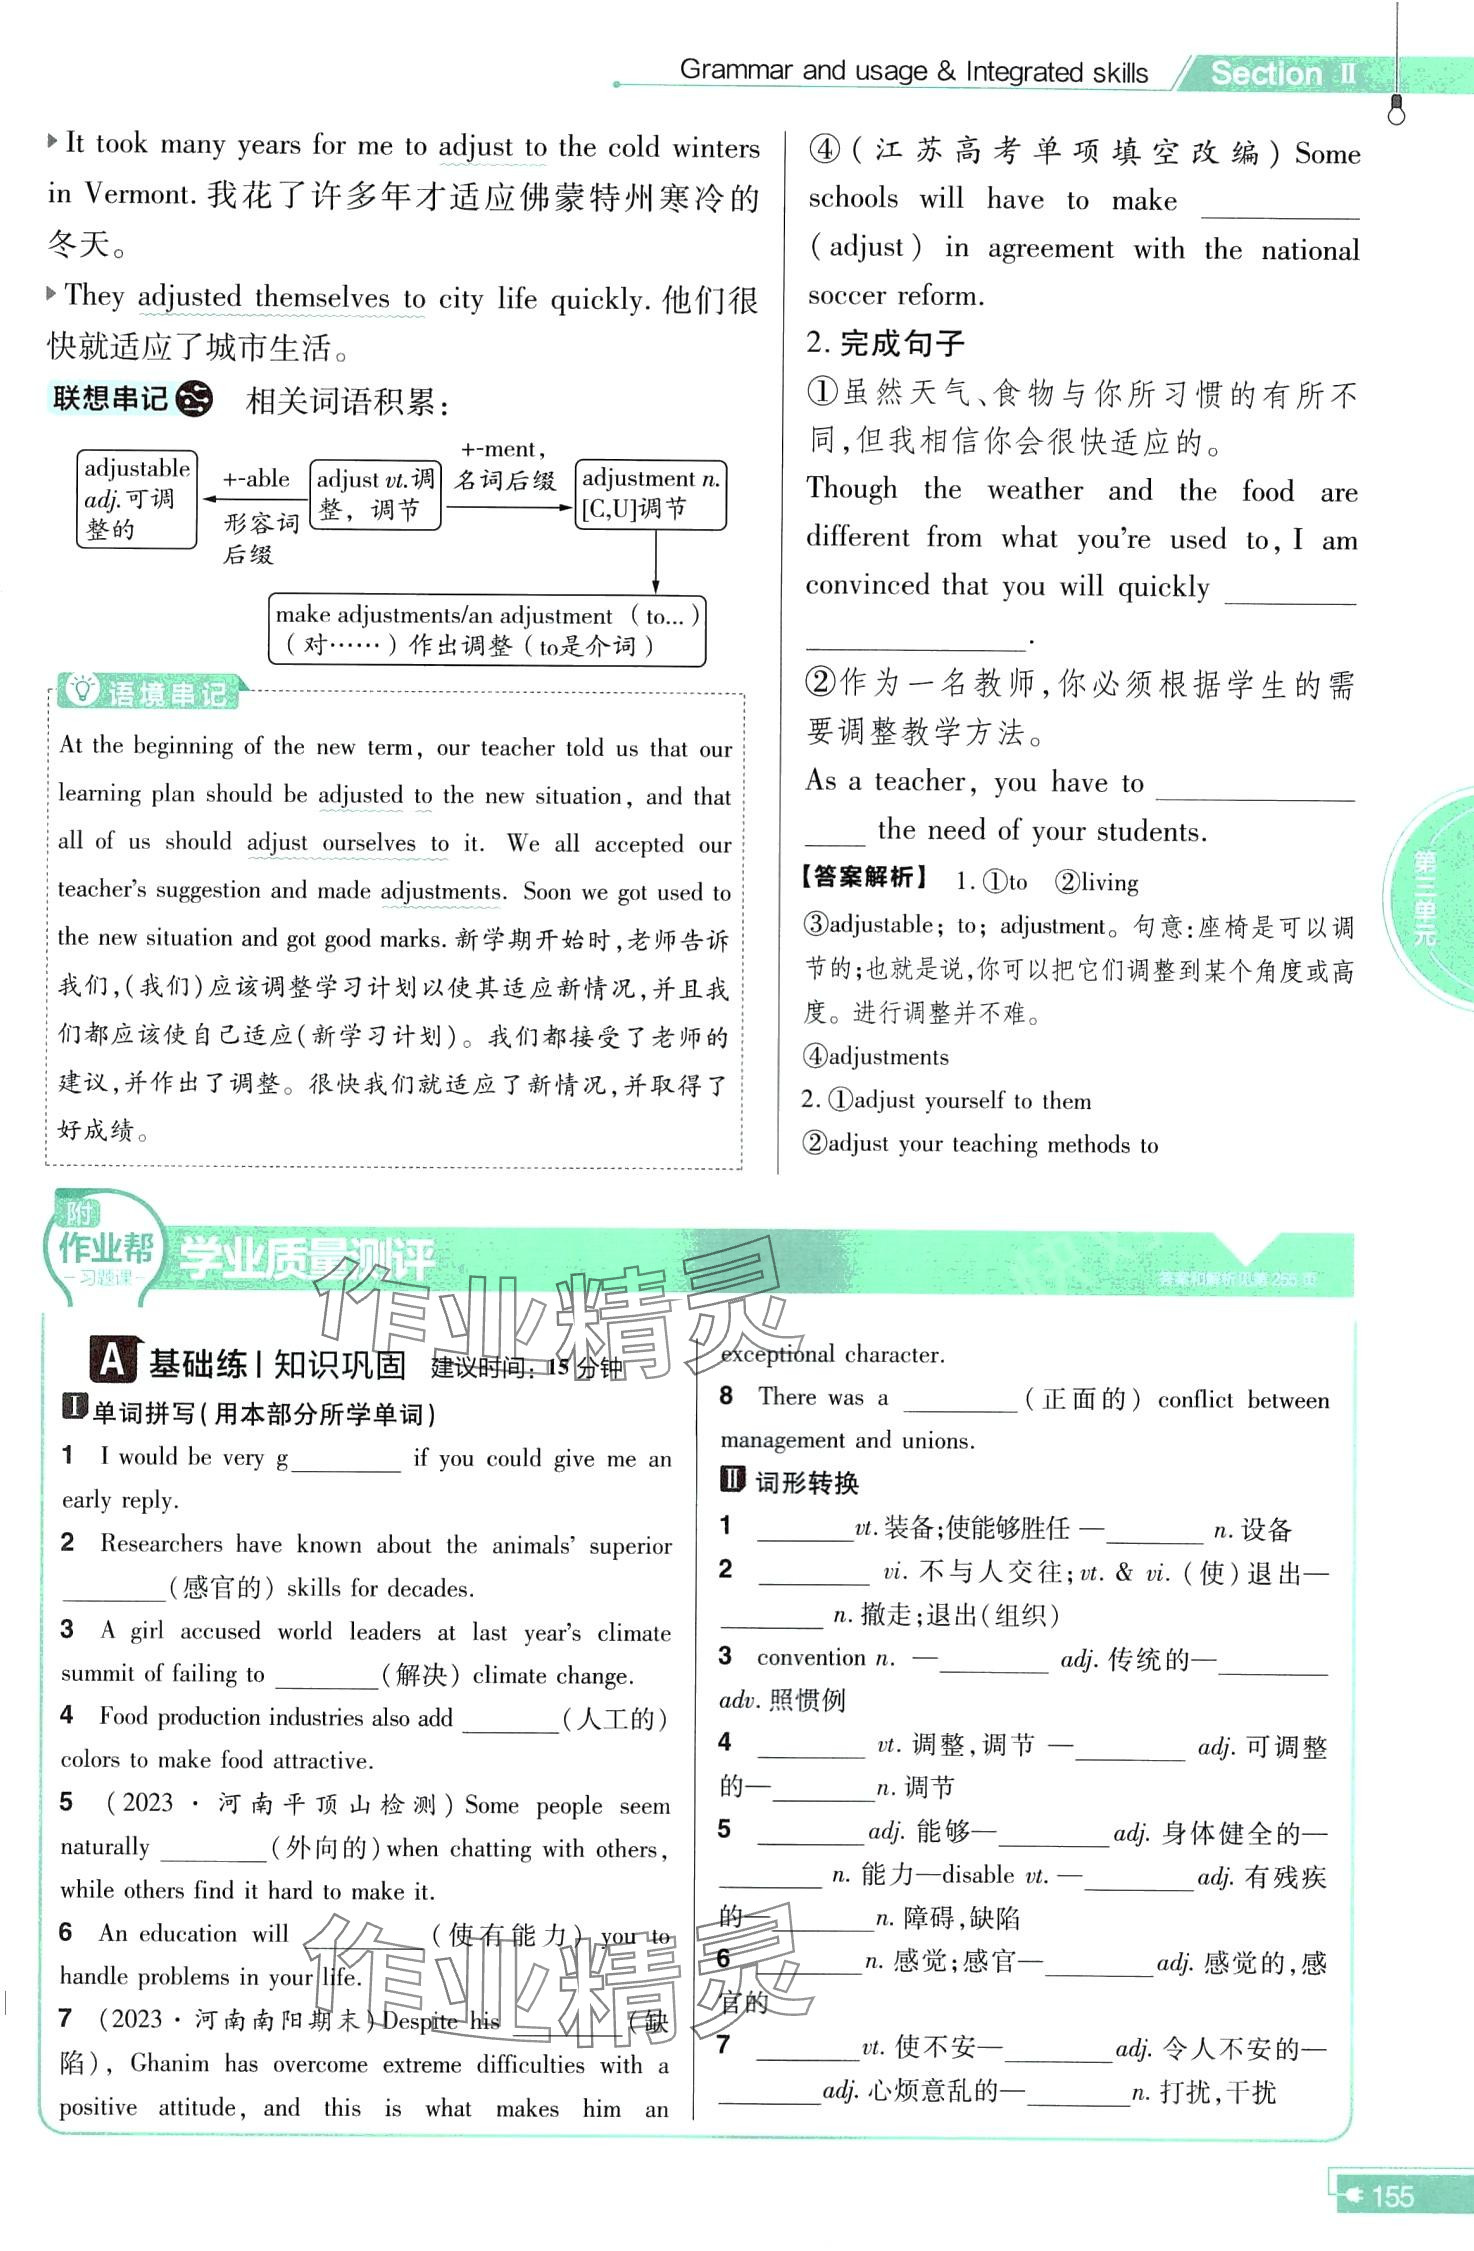 Grammar and usage & Integrated skills
Section Ⅱ
It took many years for me to adjust to the cold winters
in Vermont. 我花了许多年才适应佛蒙特州寒冷的
冬天。
They adjusted themselves to city life quickly. 他们很
快就适应了城市生活。
联想串记 相关词语积累：
adjustable
adj.可调
整的
+-able
形容词
后缀
adjust vt.调
整，调节
+-ment，
名词后缀
adjustment n.
[C,U]调节
make adjustments/an adjustment （to...）
（对……）作出调整（to是介词）
语境串记
At the beginning of the new term, our teacher told us that our
learning plan should be adjusted to the new situation, and that
all of us should adjust ourselves to it. We all accepted our
teacher's suggestion and made adjustments. Soon we got used to
the new situation and got good marks. 新学期开始时,老师告诉
我们,(我们)应该调整学习计划以使其适应新情况,并且我
们都应该使自己适应(新学习计划)。我们都接受了老师的
建议,并作出了调整。很快我们就适应了新情况,并取得了
好成绩。
④(江苏高考单项填空改编)Some
schools will have to make ________
(adjust) in agreement with the national
soccer reform.
2. 完成句子
①虽然天气、食物与你所习惯的有所不
同,但我相信你会很快适应的。
Though the weather and the food are
different from what you're used to, I am
convinced that you will quickly ________
________.
②作为一名教师,你必须根据学生的需
要调整教学方法。
As a teacher, you have to ________
____ the need of your students.
【答案解析】 1. ①to ②living
③adjustable; to; adjustment。句意:座椅是可以调
节的;也就是说,你可以把它们调整到某个角度或高
度。进行调整并不难。
④adjustments
2. ①adjust yourself to them
②adjust your teaching methods to
第三单元
附
作业帮
习题课
学业质量测评
答案和解析见第 265 页
A 基础练 | 知识巩固 建议时间：15 分钟
Ⅰ 单词拼写(用本部分所学单词)
1 I would be very g________ if you could give me an
early reply.
2 Researchers have known about the animals' superior
________(感官的) skills for decades.
3 A girl accused world leaders at last year's climate
summit of failing to ________(解决) climate change.
4 Food production industries also add ________(人工的)
colors to make food attractive.
5 (2023·河南平顶山检测)Some people seem
naturally ________(外向的)when chatting with others,
while others find it hard to make it.
6 An education will ________ (使有能力) you to
handle problems in your life.
7 (2023·河南南阳期末)Despite his ________(缺
陷), Ghanim has overcome extreme difficulties with a
positive attitude, and this is what makes him an
exceptional character.
8 There was a ________(正面的) conflict between
management and unions.
Ⅱ 词形转换
1 ________vt. 装备;使能够胜任 —________ n. 设备
2 ________ vi. 不与人交往;vt. & vi. (使)退出—
________ n. 撤走;退出(组织)
3 convention n. —________ adj. 传统的—________
adv. 照惯例
4 ________ vt. 调整,调节 —________ adj. 可调整
的—________n. 调节
5 ________adj. 能够—________adj. 身体健全的—
________ n. 能力—disable vt. —________adj. 有残疾
的—________n. 障碍,缺陷
6 ________n. 感觉;感官—________adj. 感觉的,感
官的
7 ________vt. 使不安—________adj. 令人不安的—
________adj. 心烦意乱的—________n. 打扰,干扰
作业精灵
作业精灵
155